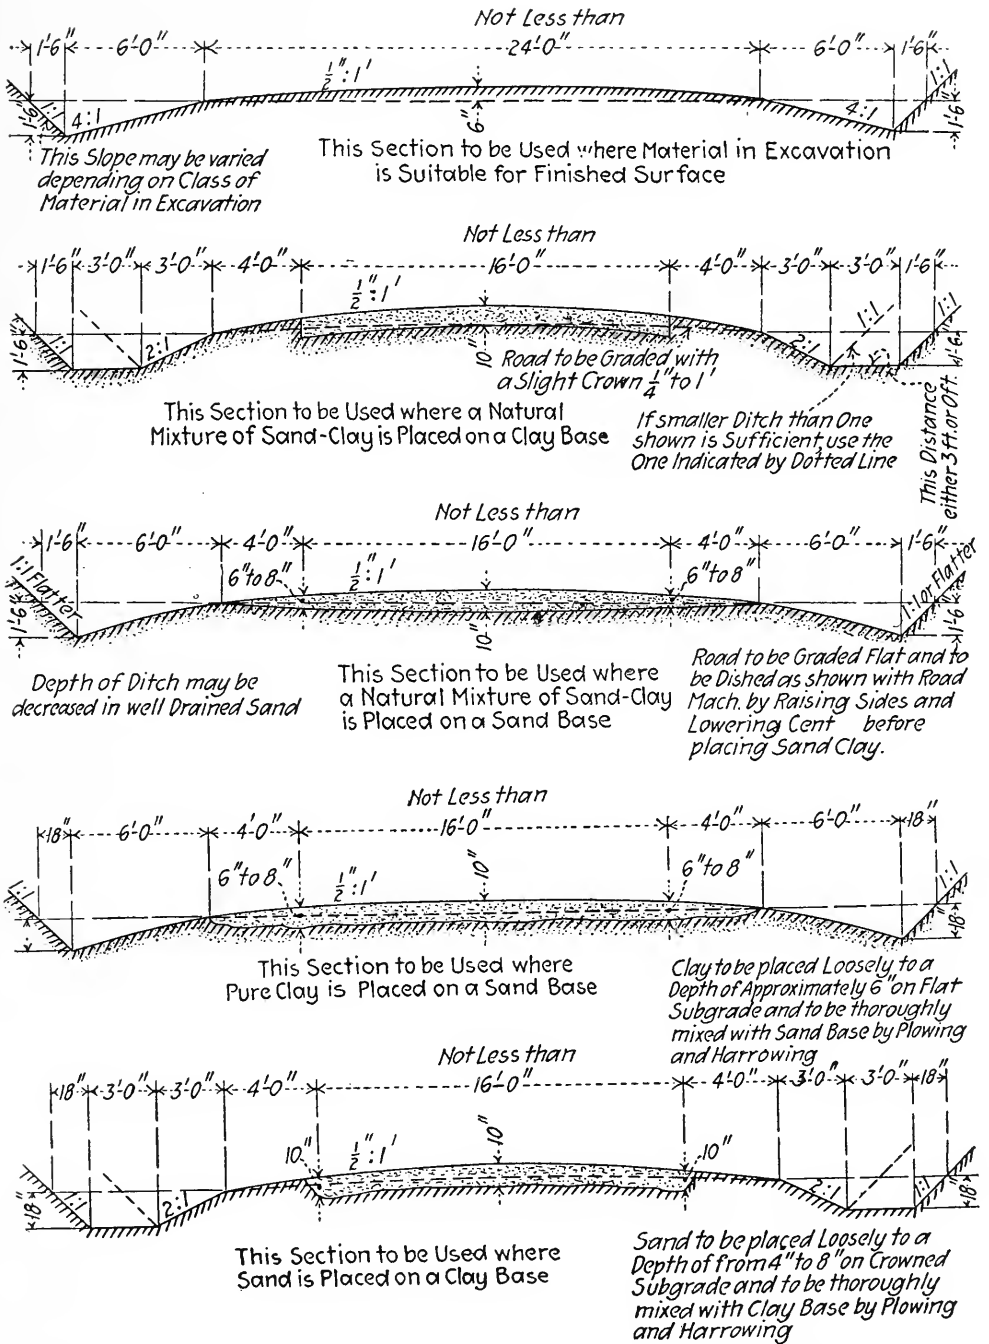 Not Less than
1'-6" 6'-0" 24'-0" 6'-0" 1'-6"
1/2":1'
1:1 4:1 6" 4:1 1:1
1'-6" 1'-6"
This Slope may be varied
depending on Class of
Material in Excavation
This Section to be Used where Material in Excavation
is Suitable for Finished Surface
Not Less than
1'-6" 3'-0" 3'-0" 4'-0" 16'-0" 4'-0" 3'-0" 3'-0" 1'-6"
1/2":1' 1:1 1:1
1'-6" 1:1 2:1 10" 2:1 1'-6"
Road to be Graded with
a Slight Crown 1/4" to 1'
This Section to be Used where a Natural
Mixture of Sand-Clay is Placed on a Clay Base
If smaller Ditch than One
shown is Sufficient, use the
One Indicated by Dotted Line
This Distance
either 3 ft. or 0 ft.
Not Less than
1'-6" 6'-0" 4'-0" 16'-0" 4'-0" 6'-0" 1'-6"
6" to 8" 1/2":1' 6" to 8"
1:1 Flatter 1:1 or Flatter
1'-6" 10" 1'-6"
Depth of Ditch may be
decreased in well Drained Sand
This Section to be Used where
a Natural Mixture of Sand-Clay
is Placed on a Sand Base
Road to be Graded Flat and to
be Dished as shown with Road
Mach. by Raising Sides and
Lowering Cent before
placing Sand Clay.
Not Less than
18" 6'-0" 4'-0" 16'-0" 4'-0" 6'-0" 18"
6" to 8" 1/2":1' 10" 6" to 8"
1:1 1:1
18"
This Section to be Used where
Pure Clay is Placed on a Sand Base
Clay to be placed Loosely to a
Depth of Approximately 6" on Flat
Subgrade and to be thoroughly
mixed with Sand Base by Plowing
and Harrowing
Not Less than
18" 3'-0" 3'-0" 4'-0" 16'-0" 4'-0" 3'-0" 3'-0" 18"
10" 1/2":1' 10" 10"
18" 1:1 2:1 2:1 1:1 18"
This Section to be Used where
Sand is Placed on a Clay Base
Sand to be placed Loosely to a
Depth of from 4" to 8" on Crowned
Subgrade and to be thoroughly
mixed with Clay Base by Plowing
and Harrowing